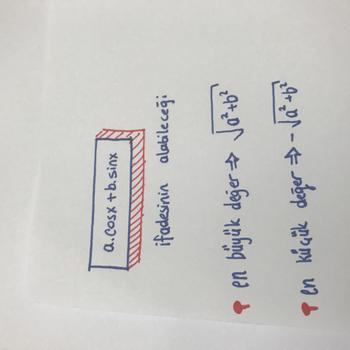 a.cosx+b.sinx
ifadesinin alabileceği
en büyük değer ⇒ √a²+b²
en küçük değer ⇒ -√a²+b²